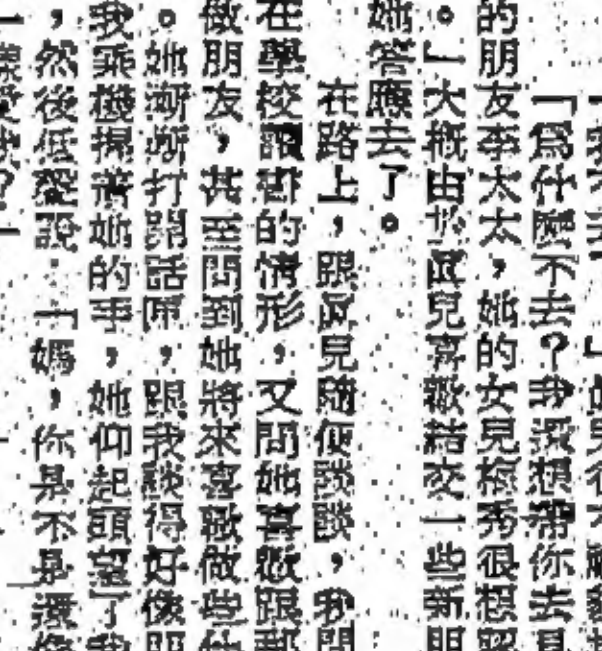 「為什麼不去?我還想帶你去見
的朋友李太太,她的女兒梅秀很想認
。」大概由於真兒喜歡結交一些新朋
她答應去了。
在路上,跟真兒隨便談談,我問
在學校讀書的情形,又問她喜歡跟那
做朋友,甚至問到她將來喜歡做些什
。她漸漸打開話匣,跟我談得好像朋
我乘機握著她的手,她仰起頭望了我
,然後低聲說:「媽,你是不是還像